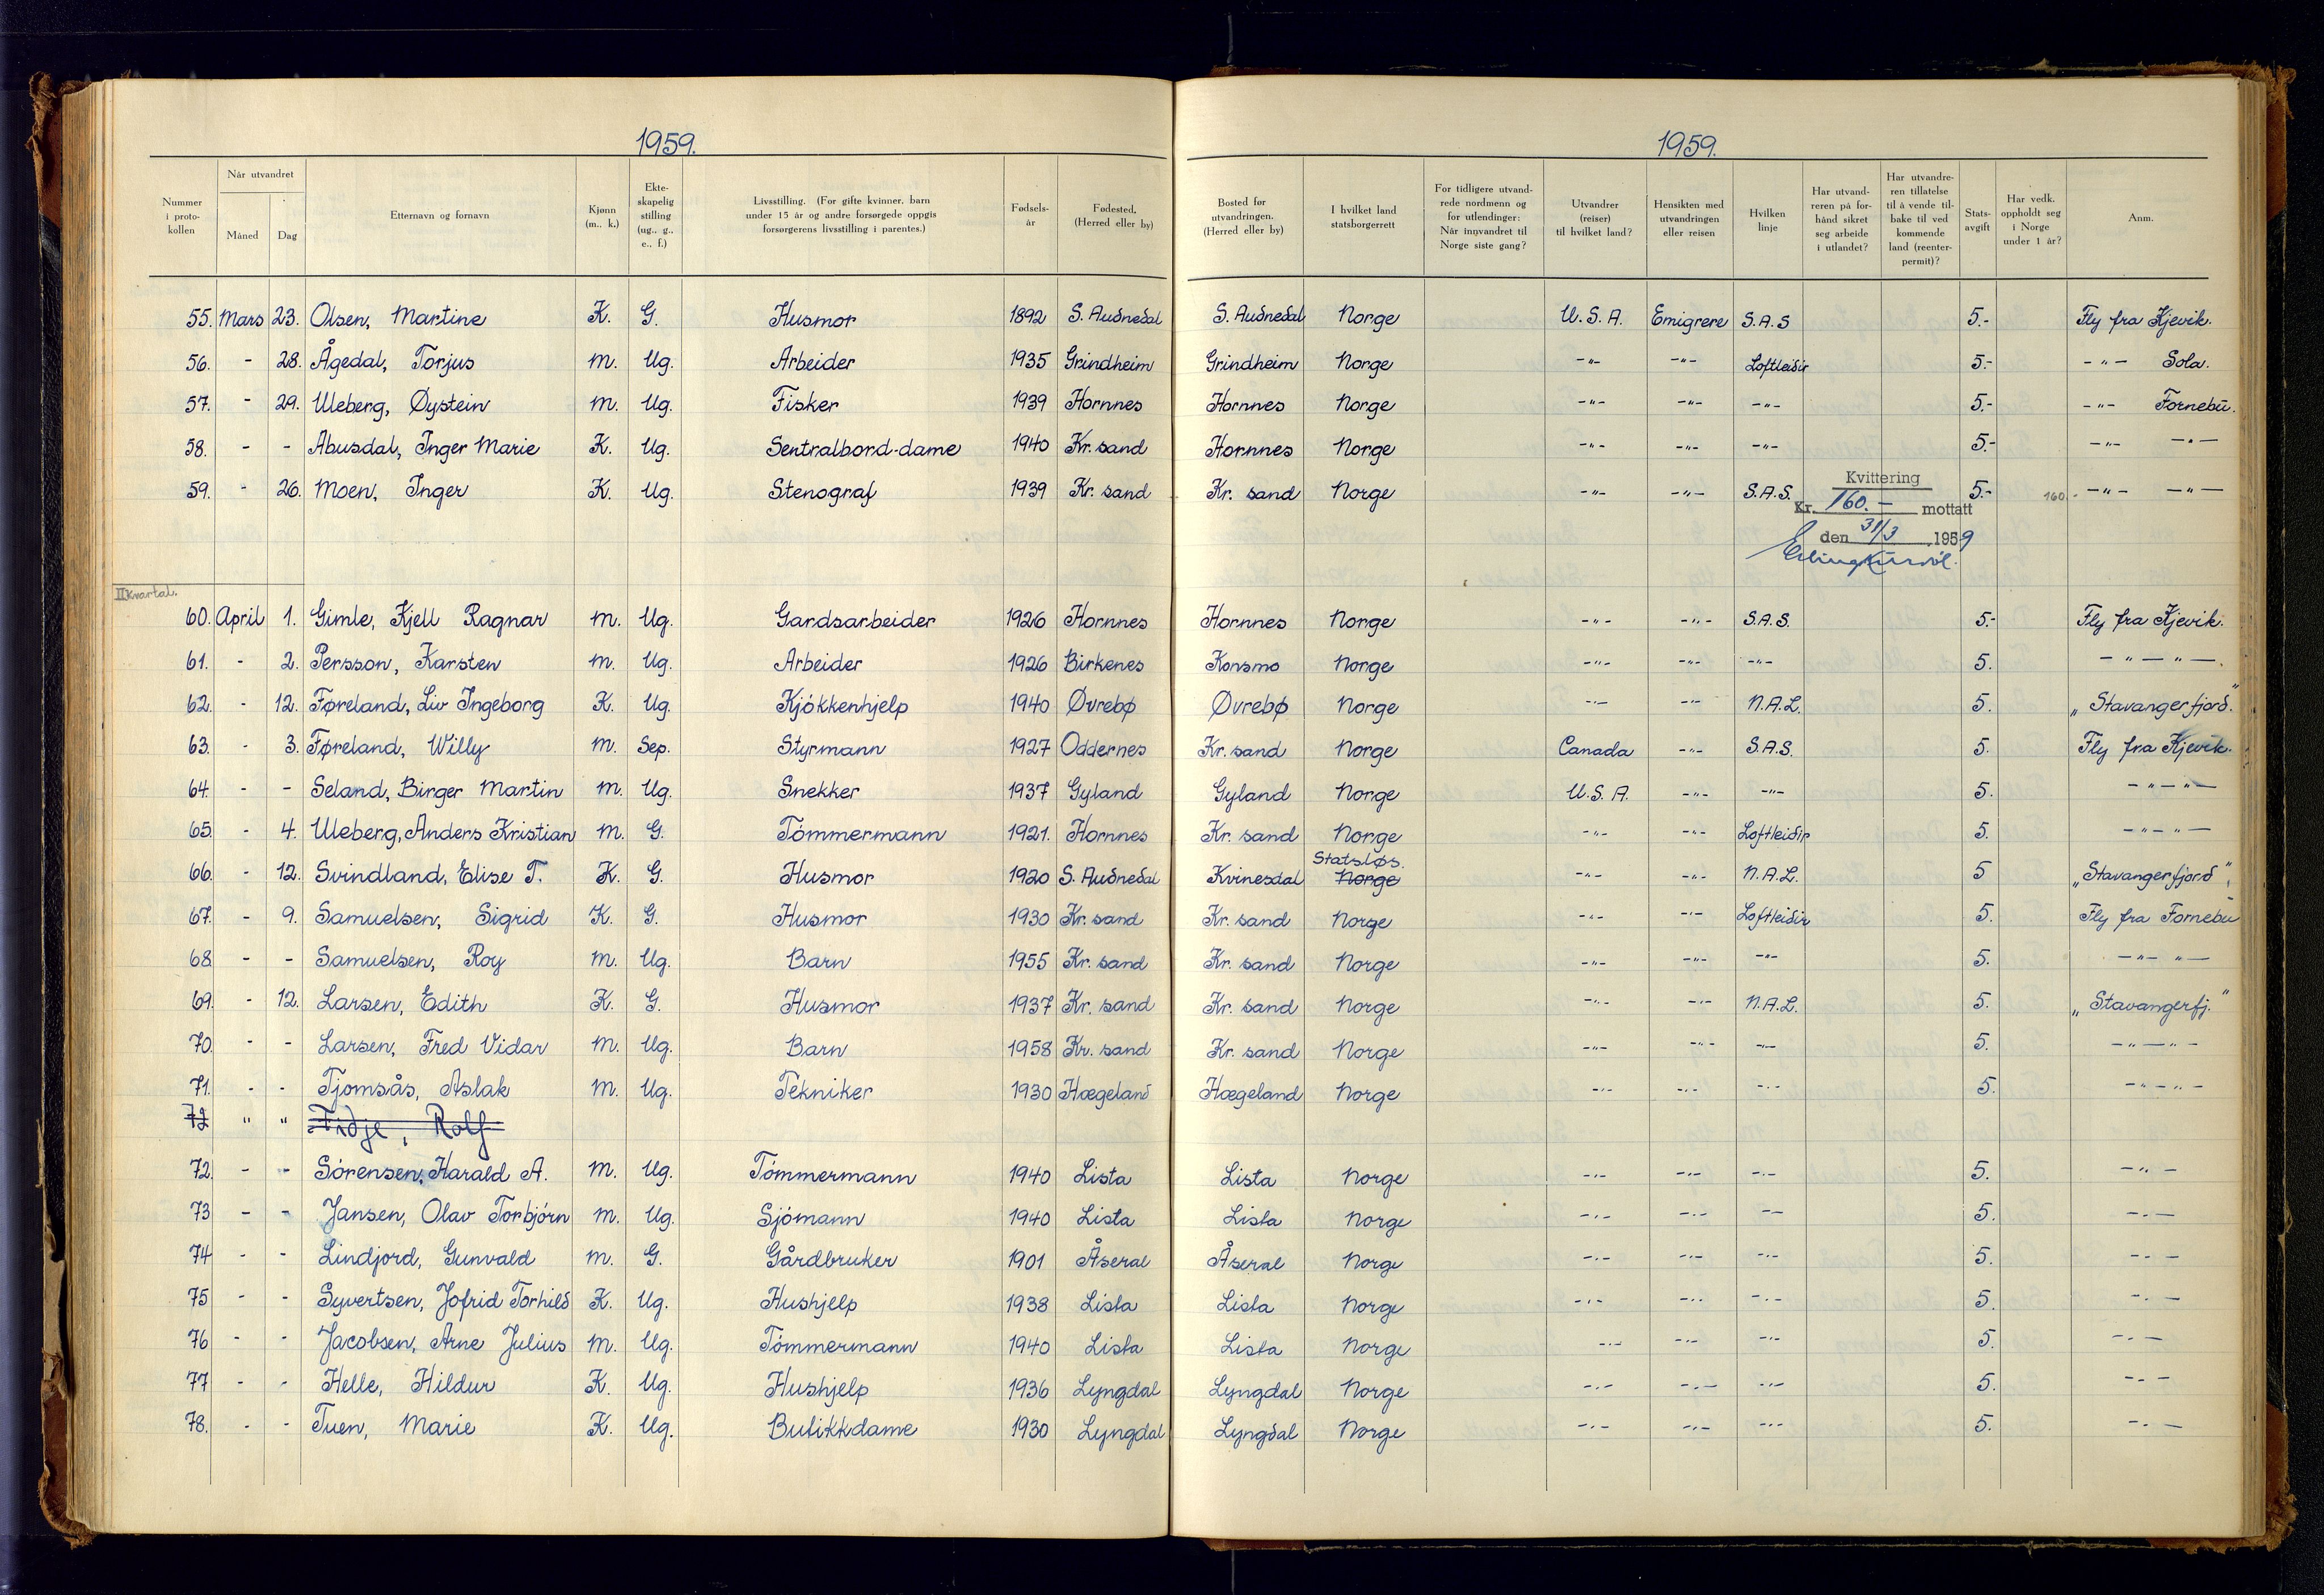 1959. 1959.
Nummer i proto- kollen | Når utvandret | Måned | Dag | Etternavn og fornavn | Kjønn (m.. k.) | Ekte- skapelig stilling (ug.. g.. e.. f.) | Livsstilling. (For gifte kvinner. barn under 15 år og andre forsørgede oppgis forsørgerens livsstilling i parentes.) | Fødsels- år | Fødested. (Herred eller by) | Bosted før utvandringen. (Herred eller by) | I hvilket land statsborgerrett | For tidligere utvand- rede nordmenn og for utlendinger: Når innvandret til Norge siste gang? | Utvandrer (reiser) til hvilket land? | Hensikten med utvandringen eller reisen | Hvilken linje | Har utvand- reren på for- hånd sikret seg arbeide i utlandet? | Har utvandre- ren tillatelse til å vende til- bake til ved kommende land (reenter- permit)? | Stats- avgift | Har vedk. oppholdt seg i Norge under 1 år? | Anm.
55. Mars 23. Olsen, Martine K. G. Husmor 1892 S. Audnedal S. Audnedal Norge U.S.A. Emigrere S.A.S 5.- Fly fra Kjevik.
56. - 28. Ågedal, Torjus M. Ug. Arbeider 1935 Grindheim Grindheim Norge -"- -"- Loftleidir 5.- -"- Sola.
57. - 29. Uleberg, Øystein M. Ug. Fisker 1939 Hornnes Hornnes Norge -"- -"- -"- 5.- -"- Fornebu.
58. - - Abusdal, Inger Marie K. Ug. Sentralbord-dame 1940 Kr. sand Hornnes Norge -"- -"- -"- 5.- -"- -"-
59. - 26. Moen, Inger K. Ug. Stenograf 1939 Kr. sand Kr. sand Norge -"- -"- S.A.S. 5.- 160.- -"- -"-
Kvittering
Kr. 160.- mottatt
den 31/3 1959
II Kvartal.
60. April 1. Gimle, Kjell Ragnar M. Ug. Gardsarbeider 1926 Hornnes Hornnes Norge -"- -"- S.A.S. 5.- Fly fra Kjevik.
61. - 2. Persson, Karsten M. Ug. Arbeider 1926 Birkenes Konsmo Norge -"- -"- -"- 5. -"-"-.
62. - 12. Føreland, Liv Ingeborg K. Ug. Kjökkenhjelp 1940 Øvrebø Øvrebø Norge -"- -"- N.A.L. 5. „Stavangerfjord."
63. - 3. Føreland, Willy M. Sep. Styrmann 1927 Oddernes Kr. sand Norge Canada -"- S.A.S. 5. Fly fra Kjevik.
64. - - Seland, Birger Martin M. Ug. Snekker 1937 Gyland Gyland Norge U.S.A. -"- -"- 5. -"-"-
65. - 4. Uleberg, Anders Kristian M. G. Tömmermann 1921. Hornnes Kr. sand Norge -"- -"- Loftleidir 5. -"-"-
66. - 12. Svindland, Elise T. K. G. Husmor 1920 S. Audnedal Kvinesdal Statsløs. Norge -"- -"- N.A.L. 5 „Stavangerfjord".
67. - 9. Samuelsen, Sigrid K. G. Husmor 1930 Kr. sand Kr. sand Norge -"- -"- Loftleidir 5. Fly fra Fornebu
68 - - Samuelsen, Roy M. Ug. Barn 1955 Kr. sand Kr. sand Norge -"- -"- -"- 5. -"- "-
69. - 12. Larsen, Edith K. G. Husmor 1937 Kr. sand Kr. sand Norge -"- -"- N.A.L. 5. „Stavangerfj."
70. - - Larsen, Fred Vidar M. Ug. Barn 1958 Kr. sand Kr. sand Norge -"- -"- -"- 5. -"-"-
71. - - Tjomsås, Aslak M. Ug. Tekniker 1930 Hægeland Hægeland Norge -"- -"- -"- 5. -"-"-
72 " " Fidje, Rolf
72. - - Sörensen, Harald A. M. Ug. Tömmermann 1940 Lista Lista Norge -"- -"- -"- 5. -"-
73 - - Jansen, Olav Torbjörn M. Ug. Sjömann 1940 Lista Lista Norge -"- -"- -"- 5. -"-
74 - - Lindjord, Gunvald M. G. Gårdbruker 1901 Åseral Åseral Norge -"- -"- -"- 5. -"-
75 - - Syvertsen, Jofrid Torhild K. Ug. Hushjelp 1938 Lista Lista Norge -"- -"- -"- 5. -"-
76 - - Jacobsen, Arne Julius M. Ug. Tömmermann 1940 Lista Lista Norge -"- -"- -"- 5. -"-
77 - - Helle, Hildur K. Ug. Hushjelp 1936 Lyngdal Lyngdal Norge -"- -"- -"- 5. -"-
78. - - Tuen, Marie K. Ug. Butikkdame 1930 Lyngdal Lyngdal Norge -"- -"- -"- 5. -"-